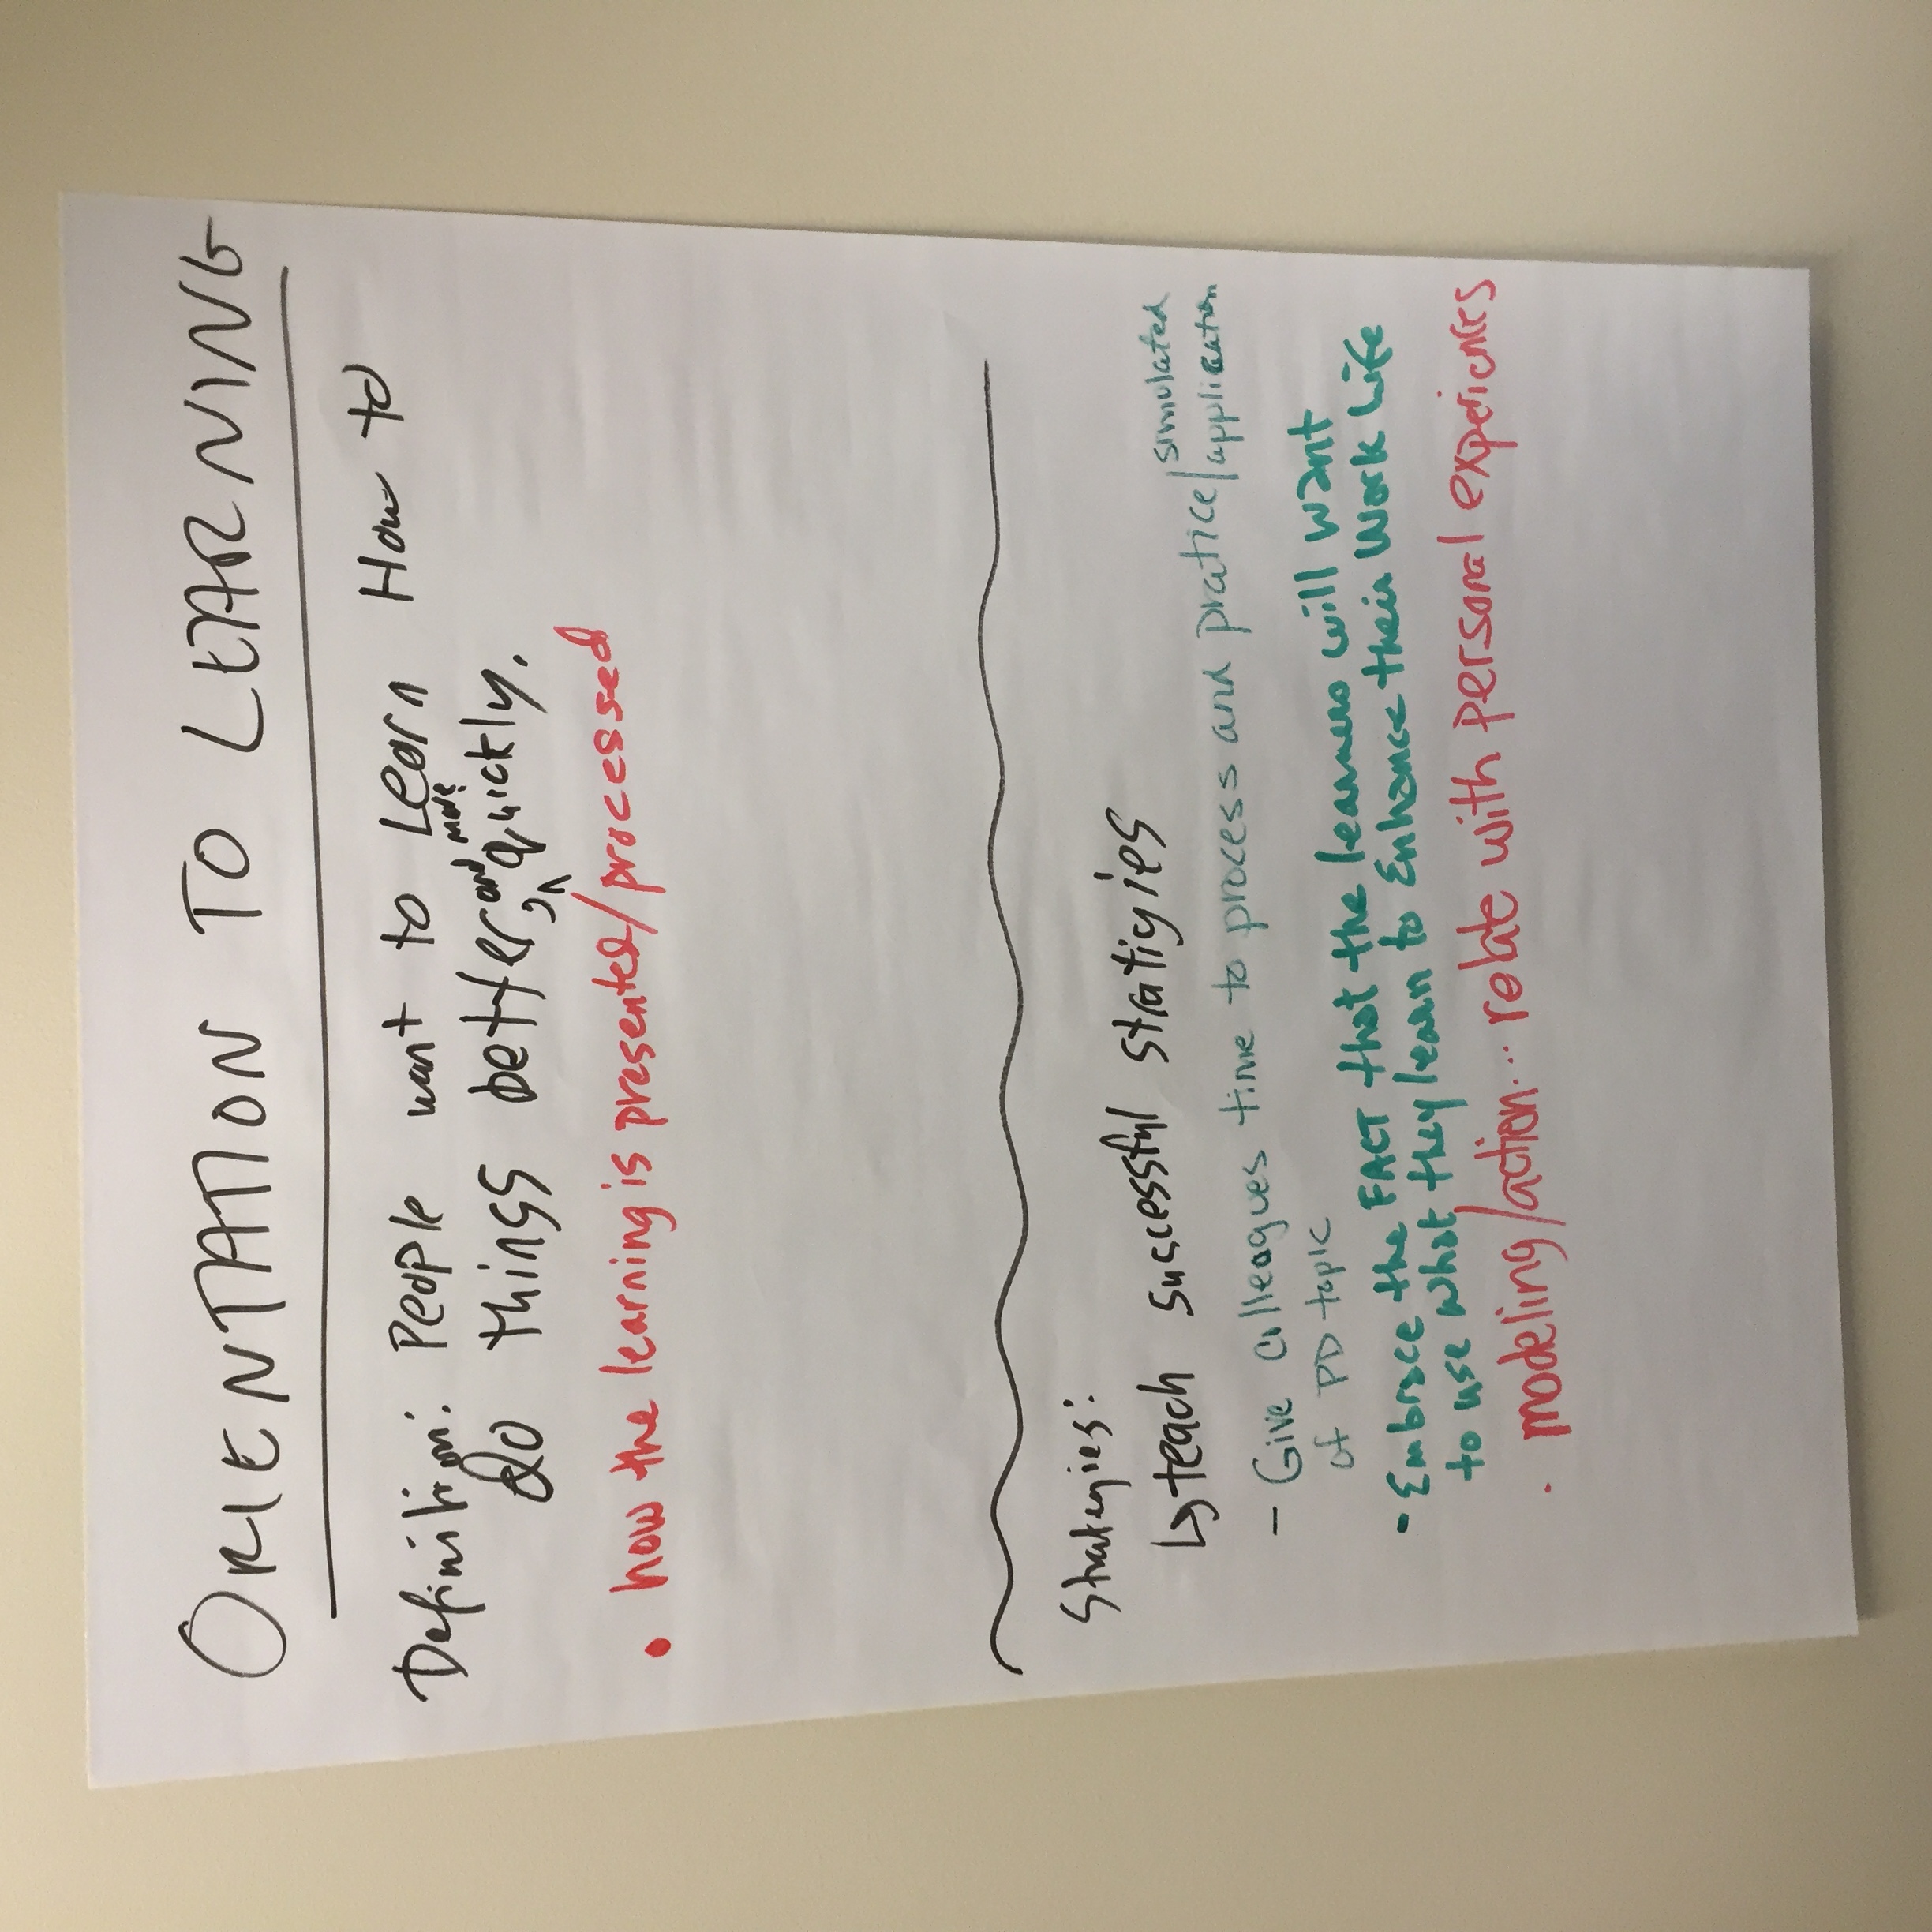 ORIENTATION TO LEARNING
Definition: People want to Learn How to
Do things better, and more quickly.
• how the learning is presented/processed
Strategies:
↳ teach successful stratigies
- Give colleagues time to process and pratice/simulated application
of PD topic
• Embrace the FACT that the learners will want
to use what they learn to Enhance their work life
• modeling/action... relate with personal experiences